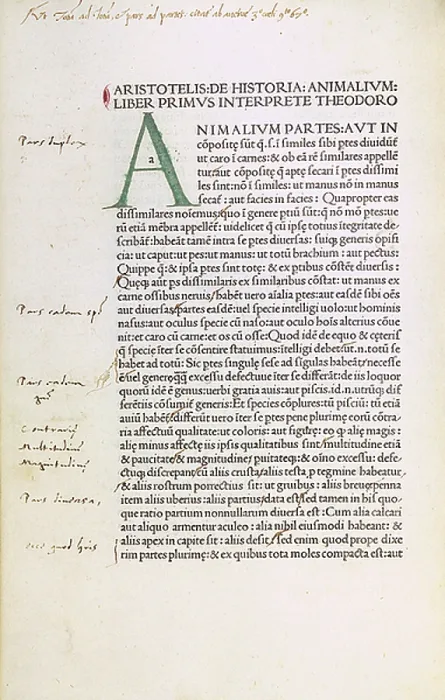 ARISTOTELIS:DE HISTORIA: ANIMALIVM:
LIBER PRIMVS INTERPRETE THEODORO
ANIMALIVM PARTES:AVT IN
cōpositę sūt q.s.ī similes sibi ptes dividūt̄
ut caro ī carnes:& ob eā rē similares appellē
tur:aut cōpositę q̄ aptę secari ī ptes dissimi
les sint:nō ī similes: ut manus nō in manus
secat̄ :aut facies in facies : Quapropter eas
dissimilares noīemus:quo ī genere ptiū sūt:q̄ nō mō ptes:ue
rū etiā mēbra appellēt̄: uidelicet q̄ cū ipsę totius ītegritate de
scribāt̄:habeāt tamē intra se ptes diversas: suiq; generis opifi
cia: ut caput:ut pes:ut manus: ut totū brachium : aut pectus:
Quippe q̄:& ipsa ptes sint totę: & ex ptibus cōstēt diversis :
Quęq; aūt ps dissimilaris ex similaribus cōstat: ut manus ex
carne ossibus nervis/habēt uero aīalia ptes:aut easdē sibi oēs
aut diversas/partes easdē:uel specie intelligi uolo:ut hominis
nasus:aut oculus specie cū naso:aut oculo hoīs alterius cōue
nit:et caro cū carne:et os cū osse:Quod idē de equo & cęteris
q̄ specię iter se cōsentire statuimus:ītelligi debet:ut.n.totū se
habet ad totū: Sic ptes singulę sese ad sīgulas habeāt:necesse
ē:uel genere:q̄q̄ excessu defectuue iter se differāt:de iis loquor
quorū idē ē genus:uerbi gratia auis:aut piscis.id.n.utrūq; dif
ferētiis cōsumit̄ generis:Et species cōplures:tū pisciū: tū etiā
auiū habet̄:differūt uero īter se ptes pene plurimę eorū cōtra-
ria affectuū qualitate:ut coloris: aut figurę: eo q̄ alię magis :
alię minus affectę iis ipsis qualitatibus sint/multitudine etiā
& paucitate & magnitudine/puitateq;: & oīno excessu: defe-
ctuq; discrepant/cū aliis crusta/aliis testa p tegmine habeatur
& aliis rostrum porrectius sit: ut gruibus : aliis breue:penna
item aliis uberius: aliis partius/data est/sed tamen in his quo-
que ratio partium nonnullarum diversa est:Cum alia calcari
aut aliquo armentur aculeo : alia nihil eiusmodi habeant: &
aliis apex in capite sit : aliis desit/sed enim quod prope dixe
rim partes plurimę:& ex quibus tota moles compacta est:aut
a
Pars duplex
Pars eadem
Pars eadem
contrarię
Multitudinis
Magnitudinis
Pars diversa